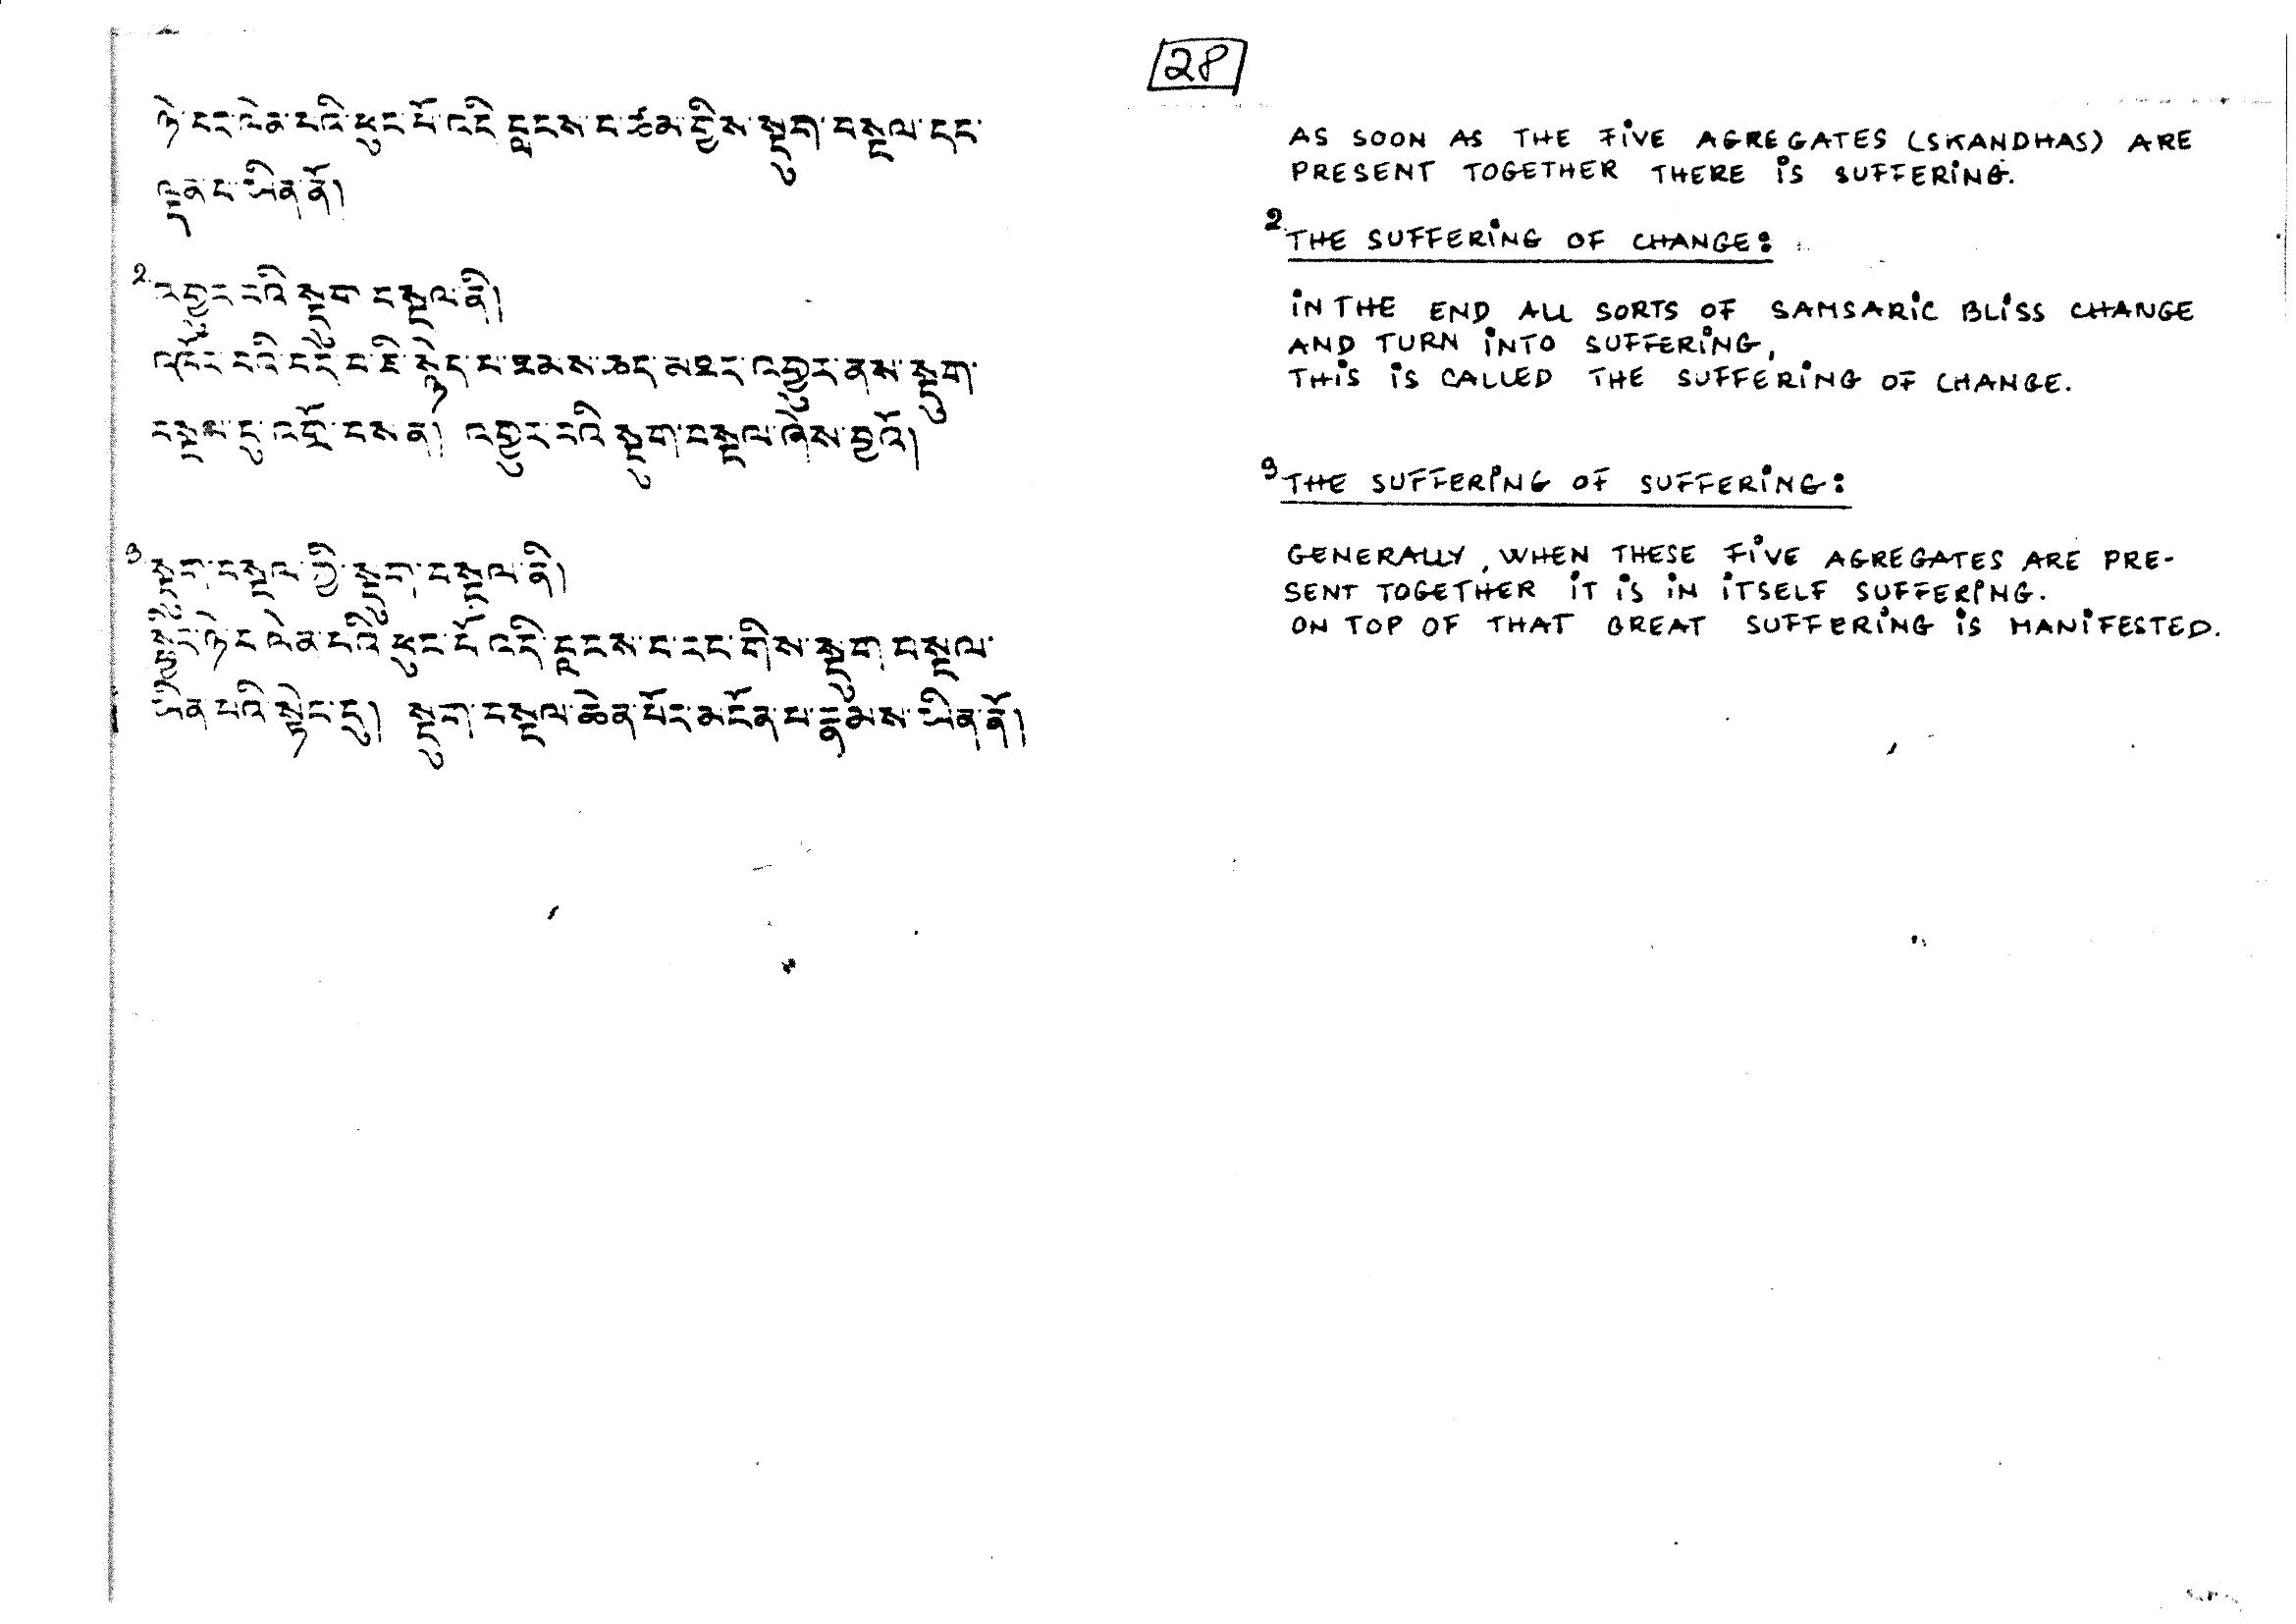 28
ཉེ་བར་ལེན་པའི་ཕུང་པོ་འདི་བླངས་པ་ཙམ་གྱིས་སྡུག་བསྔལ་དང་
ལྡན་པ་ཡིན་ནོ།
༢ འགྱུར་བའི་སྡུག་བསྔལ་ནི།
འཁོར་བའི་བདེ་བ་ཇི་སྙེད་པ་ཐམས་ཅད་མཐར་འགྱུར་ནས་སྡུག་
བསྔལ་དུ་འགྲོ་བས་ན། འགྱུར་བའི་སྡུག་བསྔལ་ཞེས་བྱའོ།
༣ སྡུག་བསྔལ་གྱི་སྡུག་བསྔལ་ནི།
སྤྱིར་ཉེ་བ་ལེན་པའི་ཕུང་པོ་འདི་བླངས་པ་རང་གིས་སྡུག་བསྔལ་
ཡིན་པའི་སྟེང་དུ། སྡུག་བསྔལ་ཆེན་པོར་མངོན་པ་རྣམས་ཡིན་ནོ།
AS SOON AS THE FIVE AGREGATES (SKANDHAS) ARE
PRESENT TOGETHER THERE IS SUFFERING.
2. THE SUFFERING OF CHANGE:
IN THE END ALL SORTS OF SAMSARIC BLISS CHANGE
AND TURN INTO SUFFERING,
THIS IS CALLED THE SUFFERING OF CHANGE.
3 THE SUFFERING OF SUFFERING:
GENERALLY, WHEN THESE FIVE AGREGATES ARE PRE-
SENT TOGETHER IT IS IN ITSELF SUFFERING.
ON TOP OF THAT GREAT SUFFERING IS MANIFESTED.